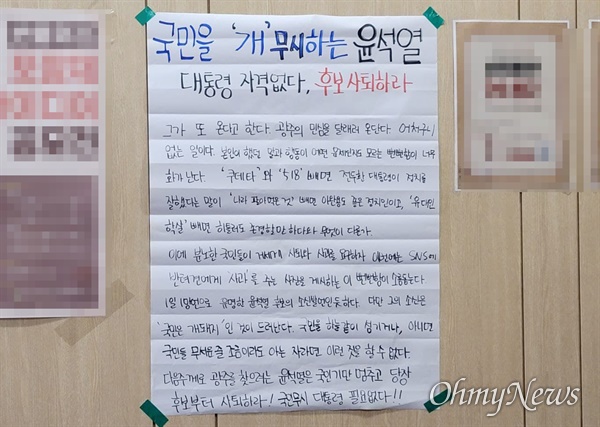 국민을 '개' 무시하는 윤석열
대통령 자격없다, 후보사퇴하라
그가 또 온다고 한다. 광주의 민심을 달래러 온단다. 어처구니
없는 일이다. 본인이 했던 말과 행동이 어떤 문제인지도 모르는 뻔뻔함이 너무
화가 난다. '쿠데타'와 '518' 빼면 전두환 대통령이 정치를
잘했다는 말이 '나라 팔아먹은 것' 빼면 이완용도 좋은 정치인이고, '유대인
학살' 빼면 히틀러도 존경할만 하다와 무엇이 다른가
이에 분노한 국민들이 거세게 사퇴와 사과를 요구하자 SNS에
반려견에게 '사과'를 주는 사진을 게시하는 이 뻔뻔함이 소름돋는다
1일 1망언으로 유명한 윤석열 후보의 소신발언인듯하다. 다만 그의 소신은
'국민은 개돼지'인 것이 드러난다. 국민을 하늘같이 섬기거나, 아니면
국민들 무서운 줄 조금이라도 아는 자라면 이런 짓을 할 수 없다.
다음주께로 광주를 찾으려는 윤석열은 국민기만 멈추고 당장
후보부터 사퇴하라! 국민무시 대통령 필요없다!!
OhmyNews